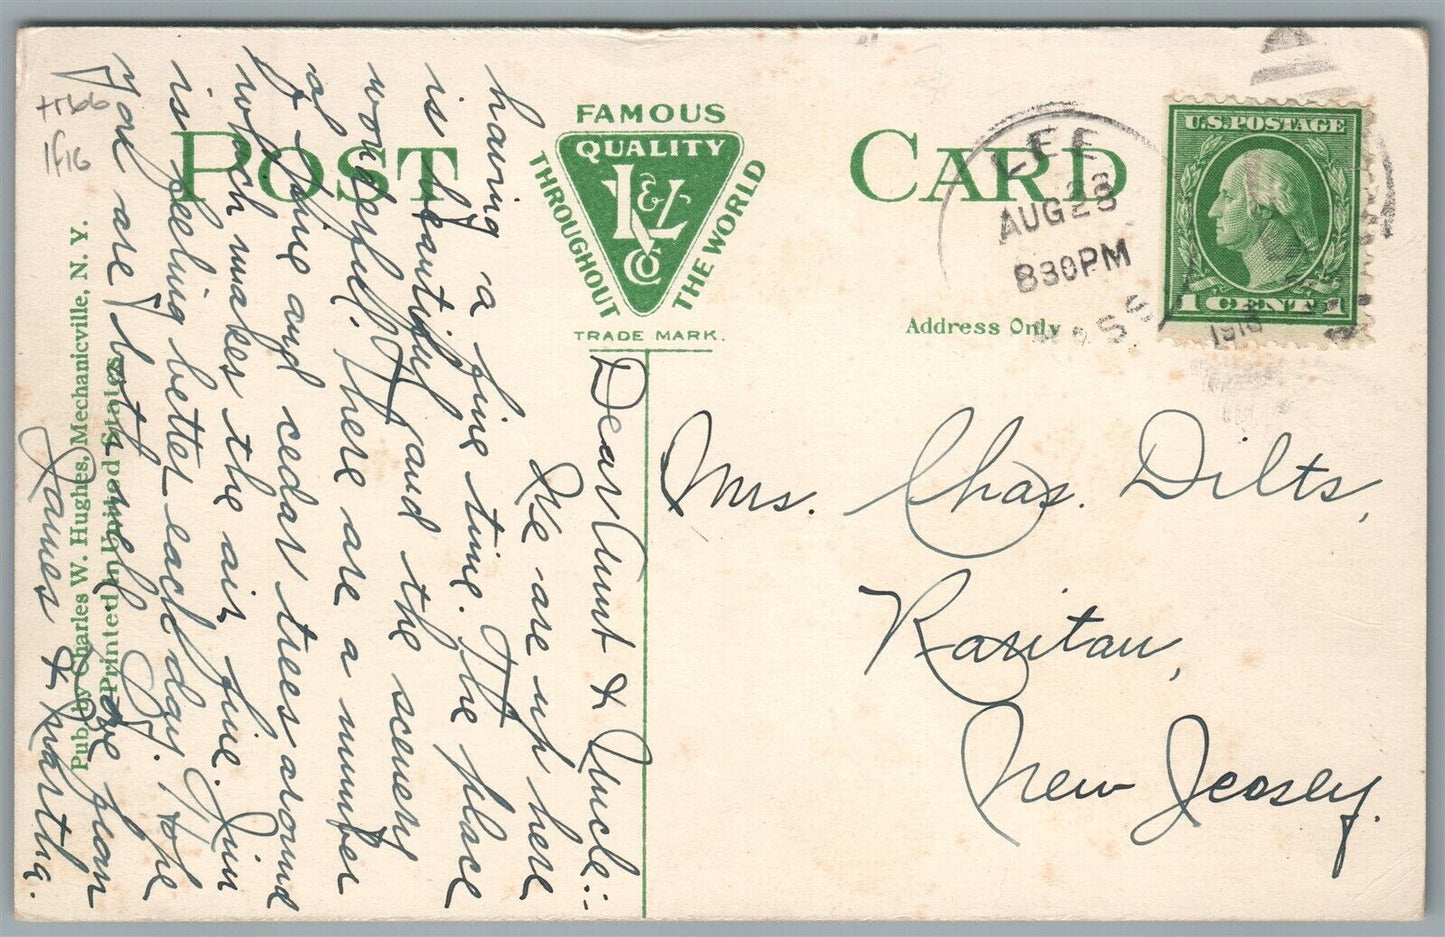 POST CARD
FAMOUS
QUALITY
THROUGHOUT
THE WORLD
L&Co
TRADE MARK.
Address Only
LEE
AUG 28
830PM
MASS.
U.S. POSTAGE
1 CENT 1
Mrs. Chas. Dilts,
Raritan,
New Jersey.
Dear Aunt & Uncle:-
We are up here
having a fine time. The place
is beautiful and the scenery
wonderful. There are a number
of pine and cedar trees around
which makes the air fine. Jim
is feeling better each day. Hope
you are both well. Love from
James & Martha.
Pub. by Charles W. Hughes, Mechanicville, N. Y.
Printed in United States
1f16